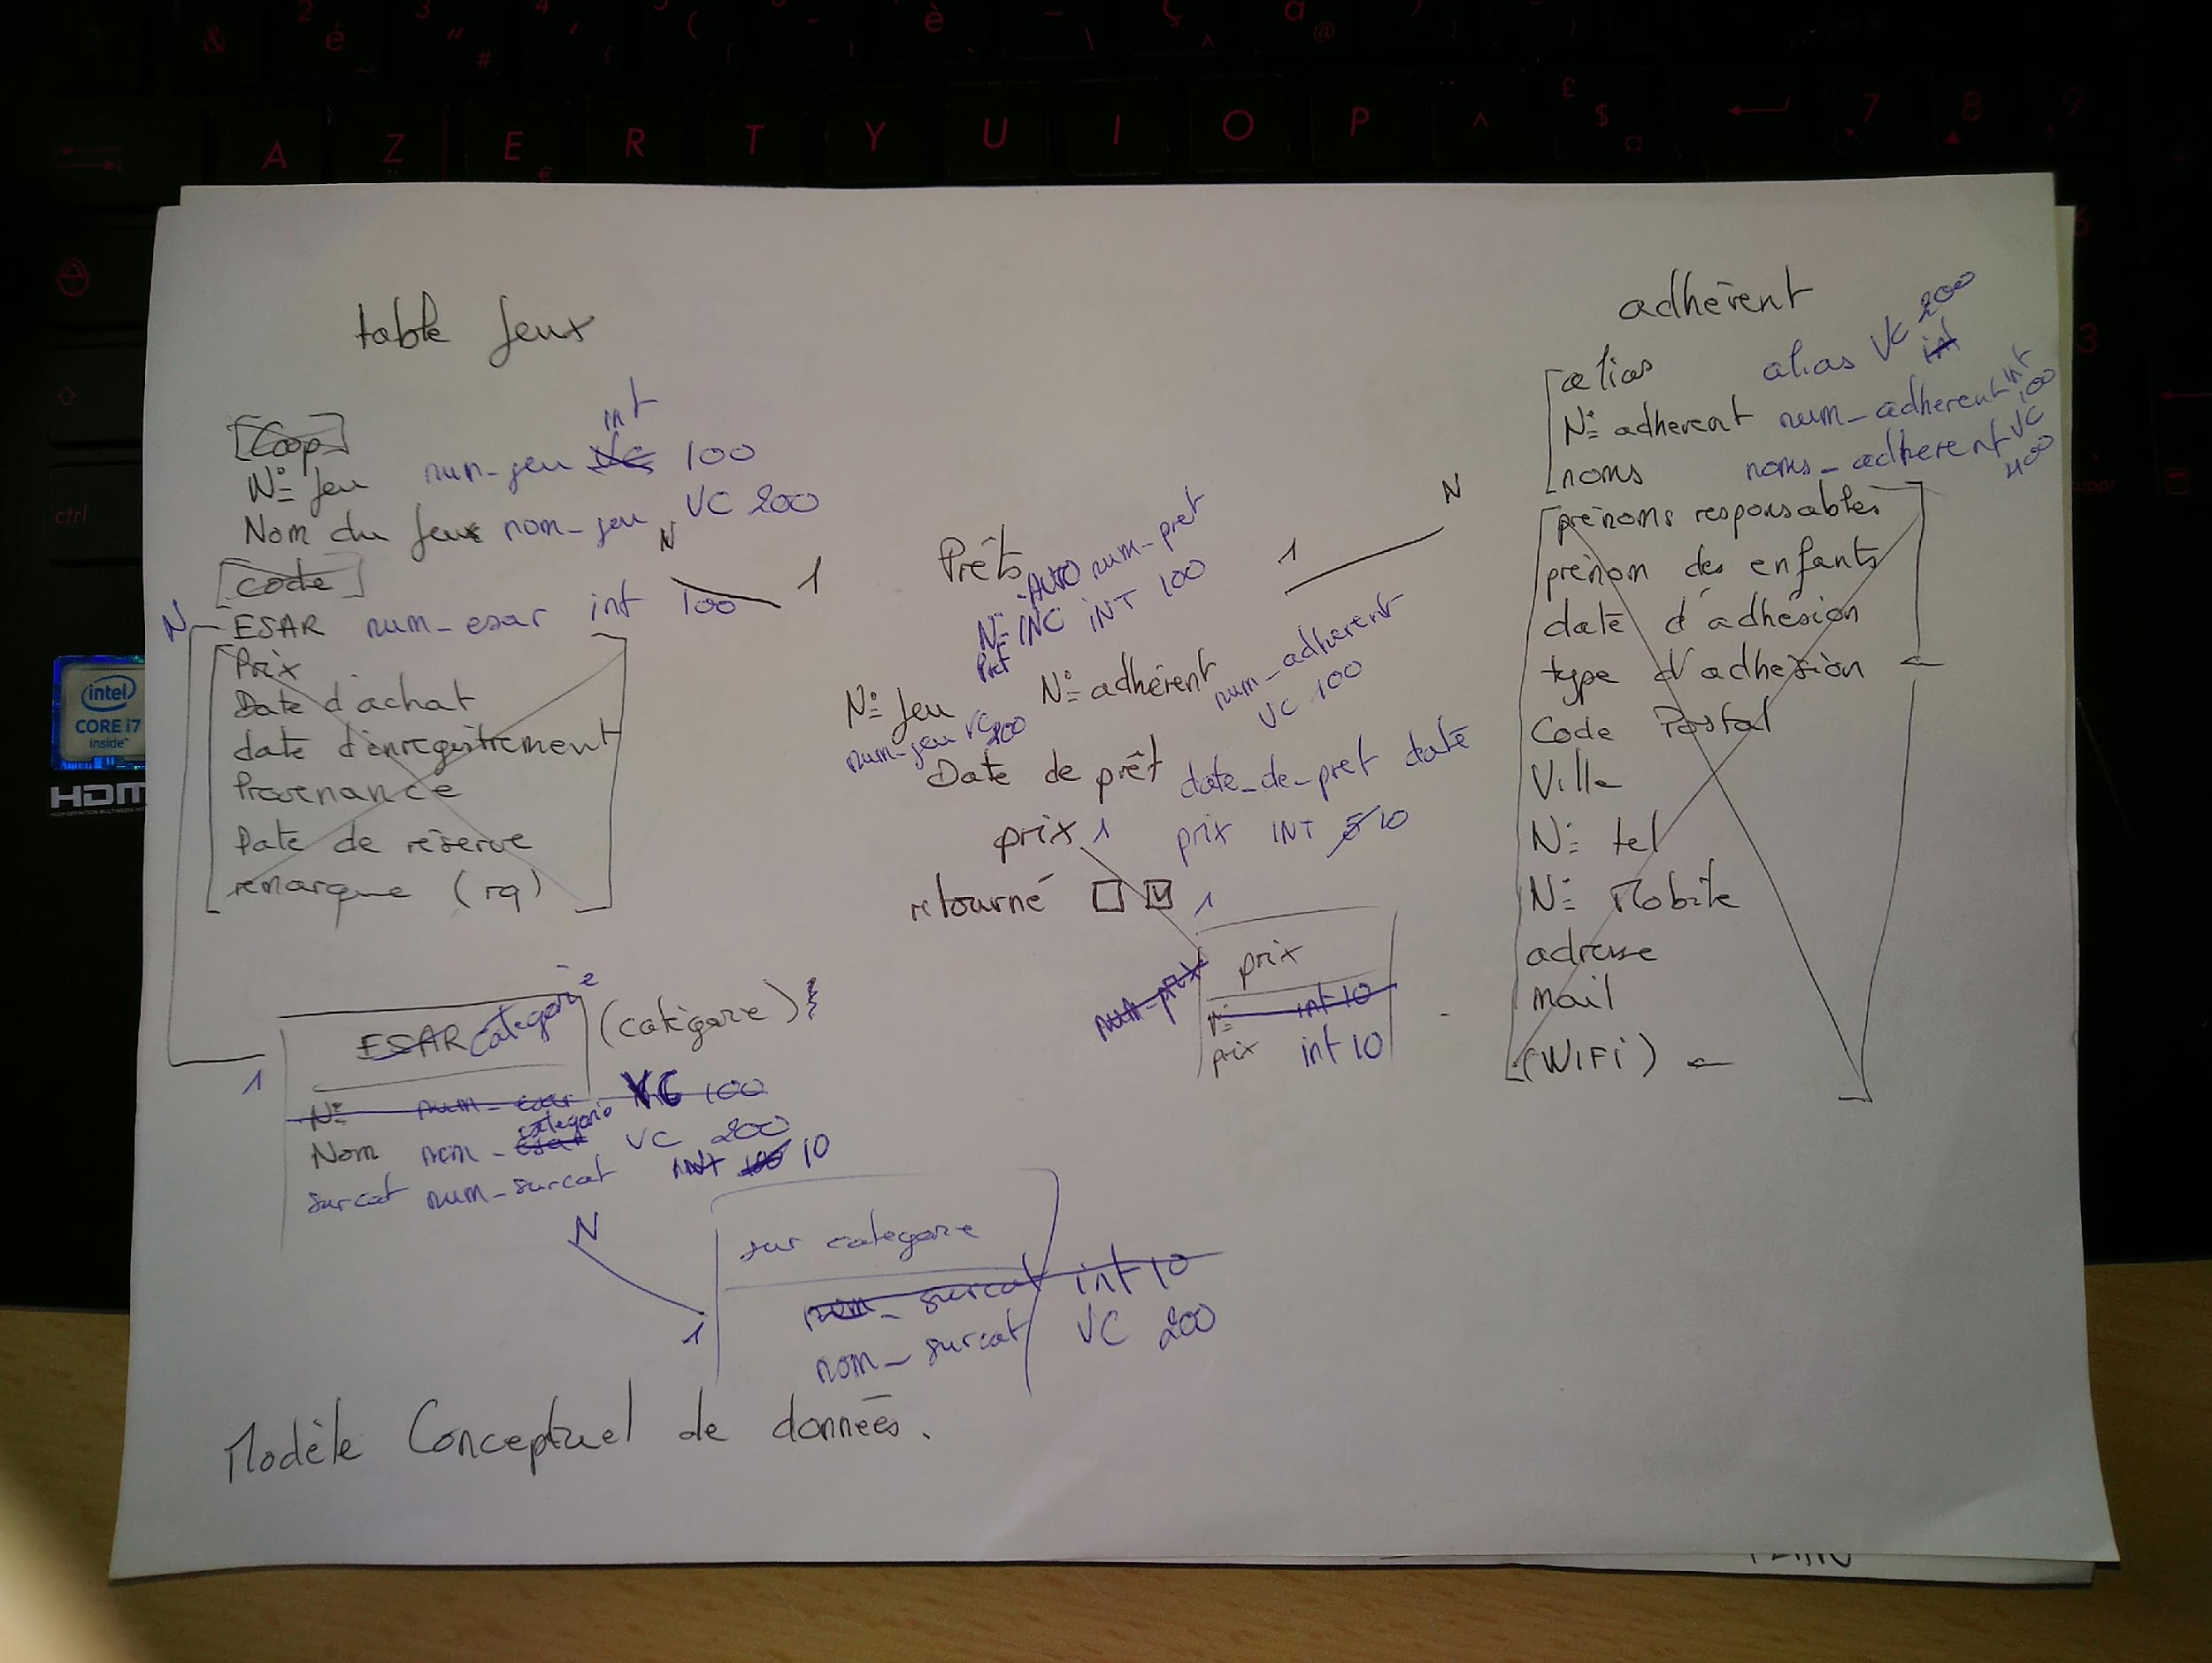 A Z E R T Y U I O P
ctrl
intel
CORE i7
inside
HDMI
table Jeux
[Coop]
N° Jeu num-jeu VC int 100
Nom du Jeux nom-jeu VC 200
[code]
N ESAR num-esar int 100
N 1
Prix
Date d'achat
date d'enregistrement
Provenance
Date de réserve
remarque (rq)
ESAR categorie (catégorie)
1
N° num-esar VC 100
Nom nom-esar categorie VC 200
surcat num-surcat INT 100 10
N
1
sur categorie
num-surcat int 10
nom-surcat VC 200
Modèle Conceptuel de données.
Prêts
N° Pret AUTO INC num-pret INT 100
1 N
N° Jeu N° adhérent num_adherent VC 100
num-jeu VC 200
Date de prêt date_de_pret date
prix 1 prix INT 5 10
retourné
1
prix
num-prix N° int 10
prix int 10
adhérent
alias alias VC 200
int
N° adherent num_adherent int 100
noms noms_adherent VC 400
prénoms responsables
prénom des enfants
date d'adhésion
type d'adhésion
Code Postal
Ville
N° tel
N° Mobile
adresse
mail
(WIFI)